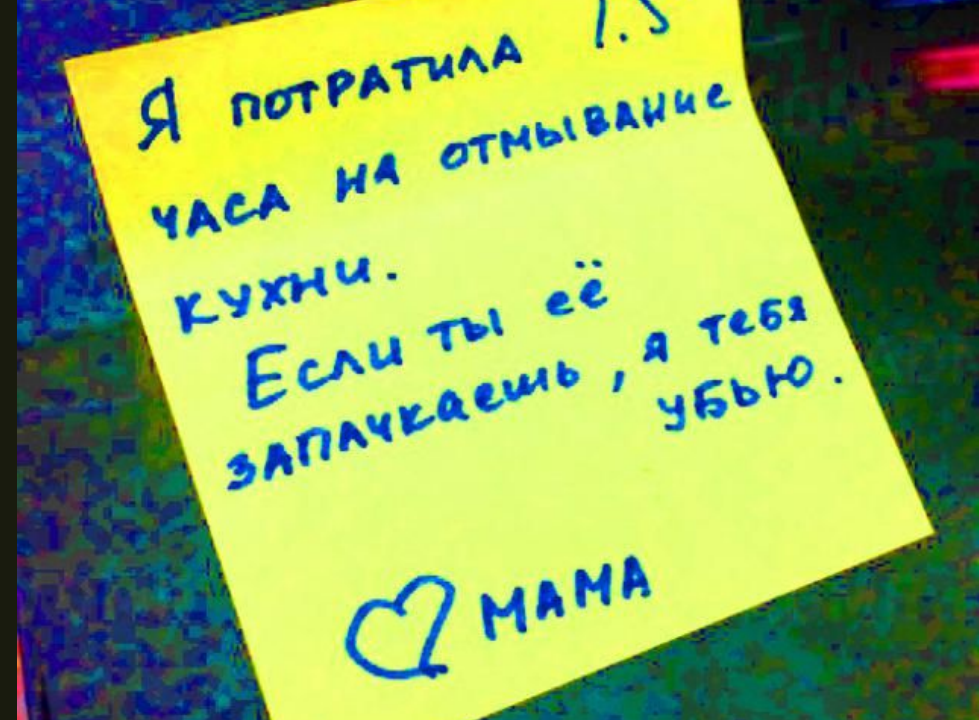 Я ПОТРАТИЛА 1.5
ЧАСА НА ОТМЫВАНИЕ
КУХНИ.
Если ты её
ЗАПАЧКАЕШЬ, Я ТЕБЯ
УБЬЮ.
♡ МАМА